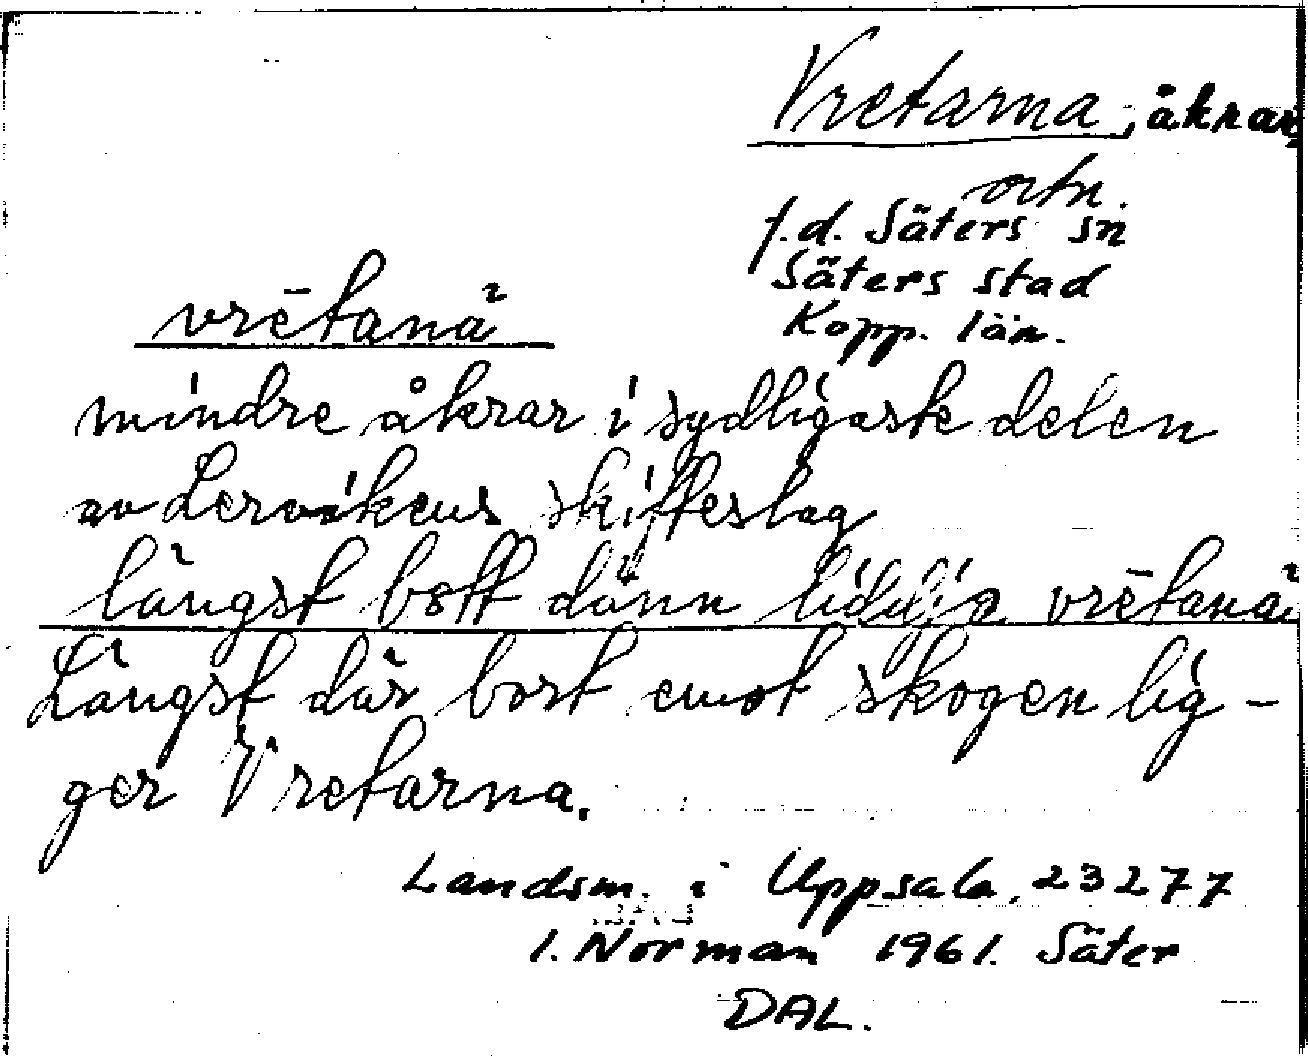 Vretarna, åkrar,
ortn.
f.d. Säters sn
Säters stad
Kopp. län.
vrētanä
mindre åkrar i sydligaste delen
av Lervikens skifteslag
längst bott dänn vrētanä
Längst där bort emot skogen lig-
ger Vretarna.
Landsm. i Uppsala, 23277
I. Norman 1961. Säter
DAL.